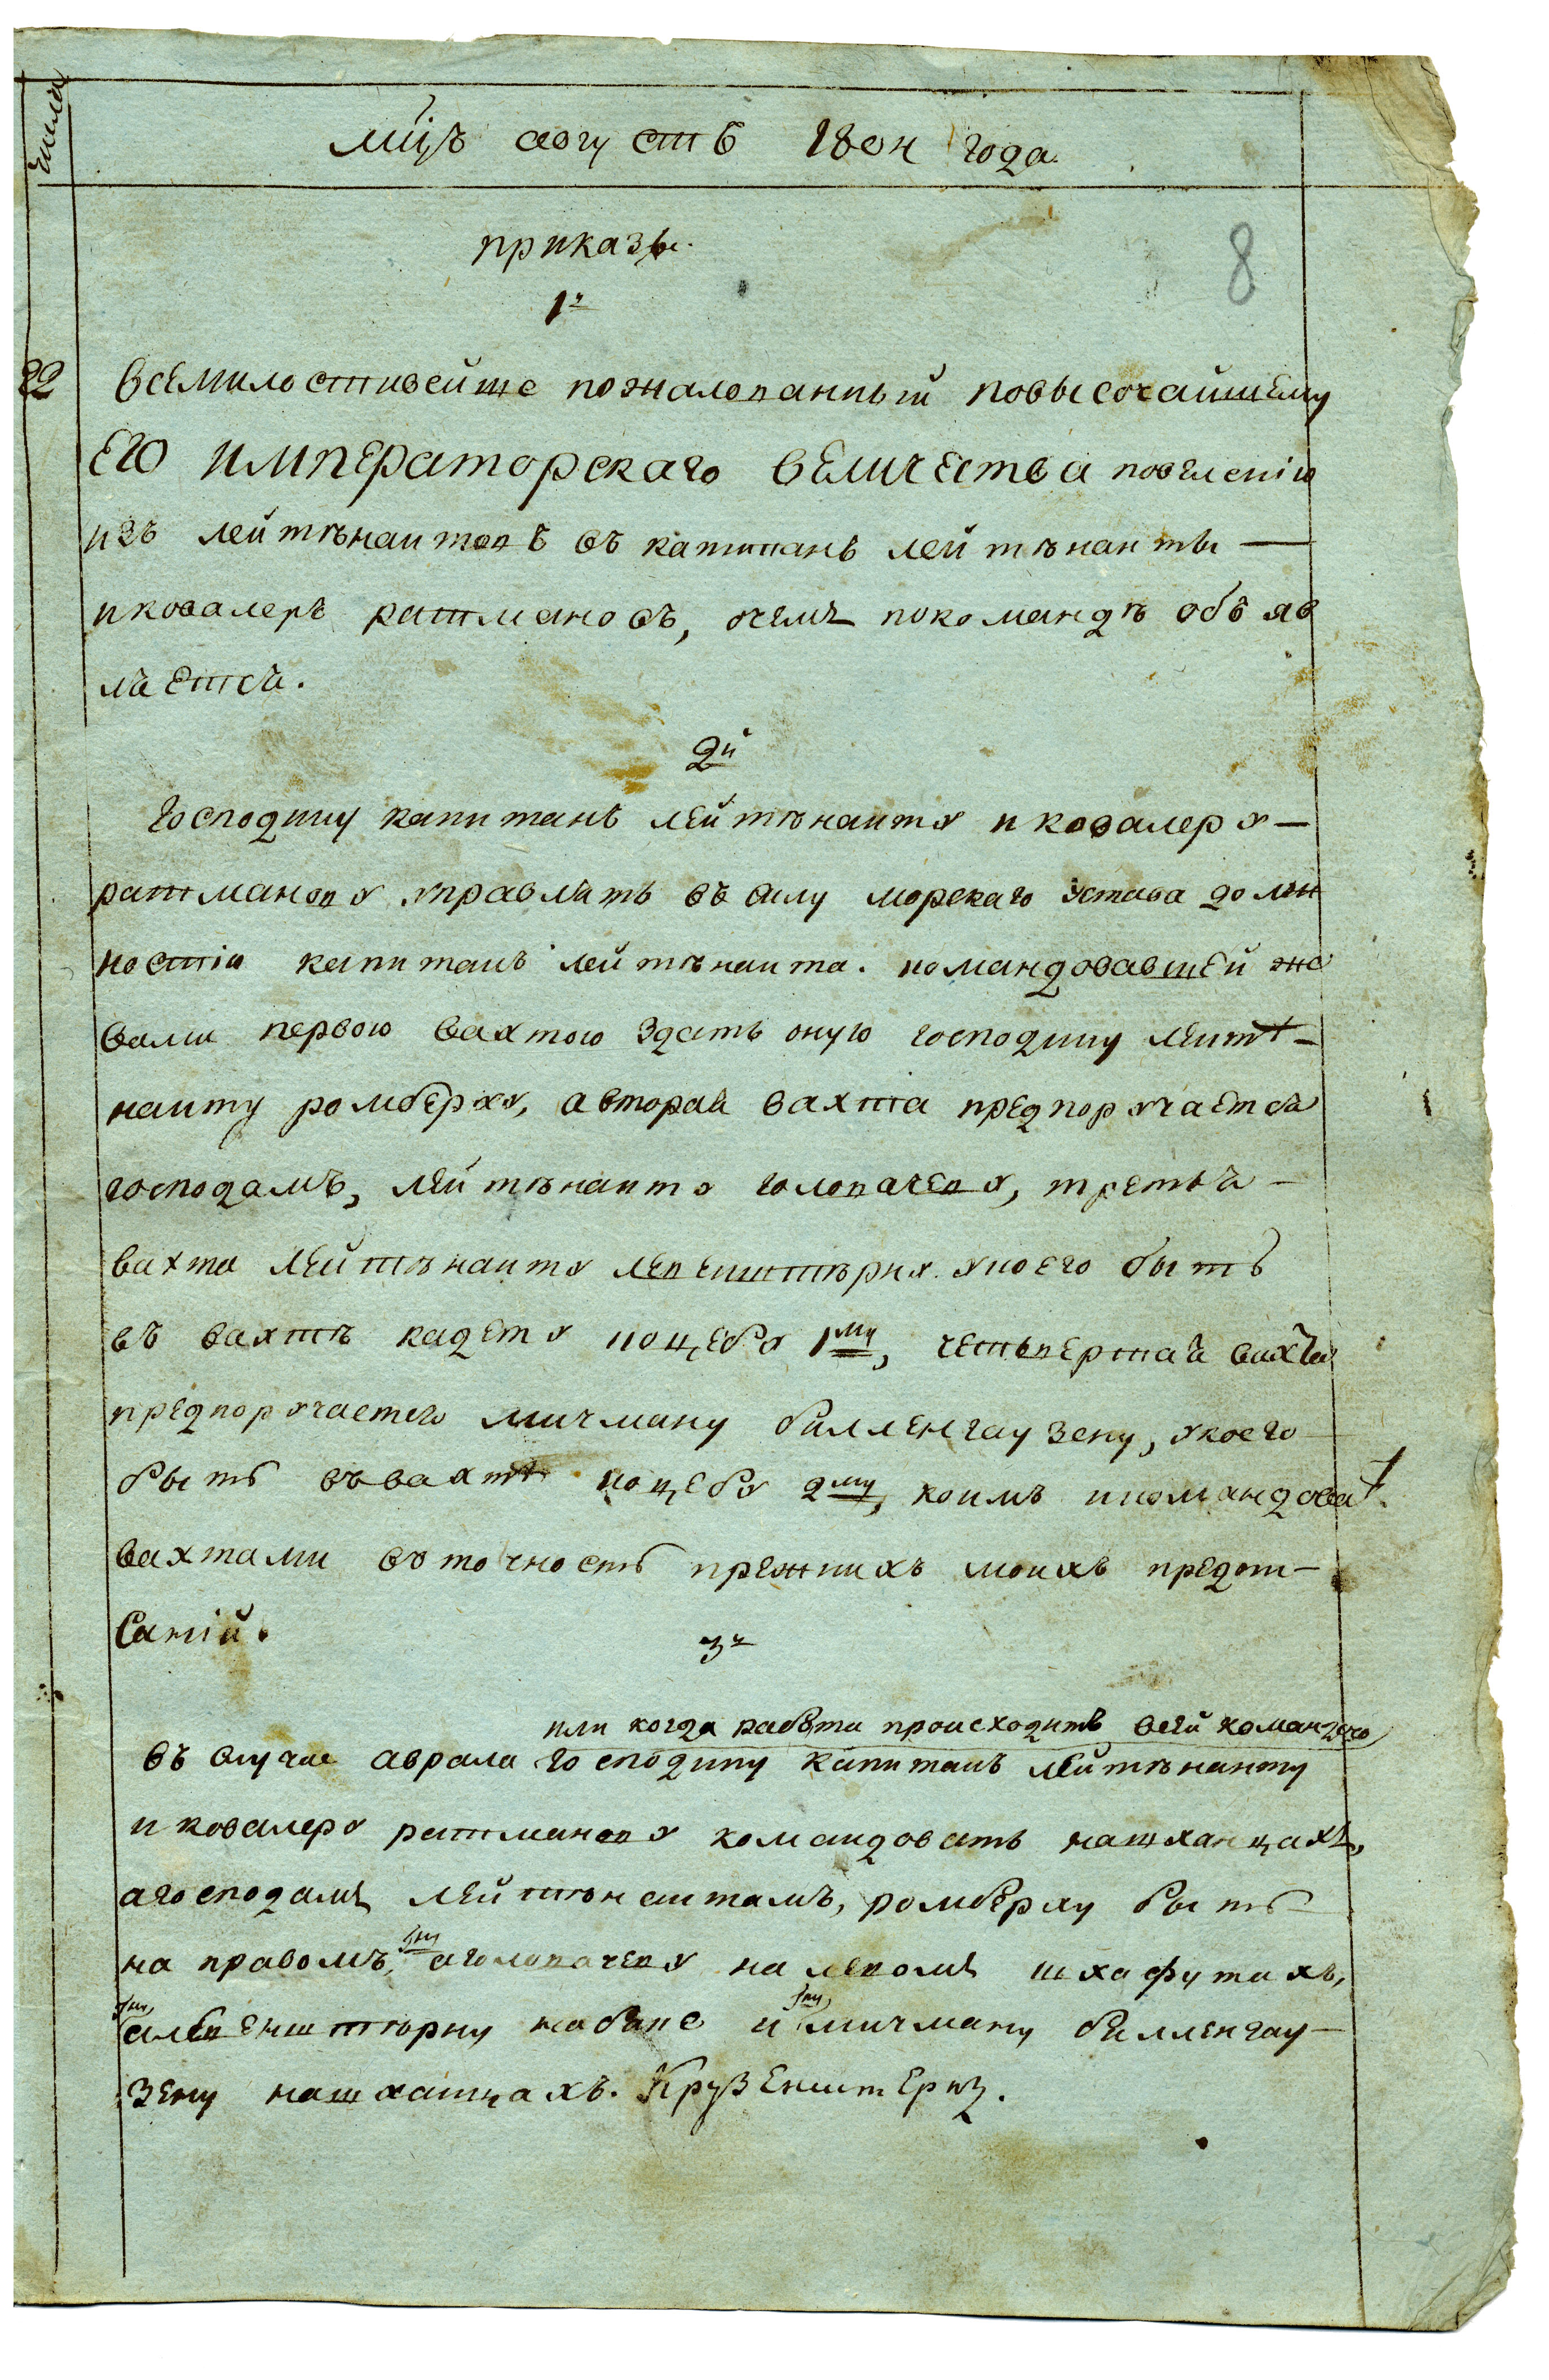 Числа
мцъ августъ 1804 года.
приказы.
8
1е
22 всемилостивейше пожалованный повысочайшему
его императорскаго величества повелению
изъ лейтѣнантовъ въ капитанъ лейтѣнанты —
икавалеръ ратмановъ, очемъ покомандѣ объ яв
лѣется.
2й
Господину капитанъ лейтѣнанту и кавалеру —
ратманову управлять въ силу морскаго устава долж
ностію капитанъ лейтѣнанта. командовавшей же
вами первою вахтою здать оную господину лейтѣ-
нанту ромберху, авторая вахта предпоручается
господамъ, лейтѣнанту головачеву, третья —
вахта лейтѣнанту левенштѣрну укоего быть
въ вахтѣ кадету коцебу 1му, четьвертая вахта
предпоручаетсо мичману билленгаузену, укоего
быть въвахтѣ коцебу 2му, коимъ икомандоват.
вахтами въточность прежнихъ моихъ предпи-
саній.
3е
или когда работа происходитъ всей командою
въ случае аврала господину капитанъ лейтѣнанту
и кавалеру ратманову командовать нашханцахъ,
агосподамъ лейтѣнантамъ, ромберху быть
на правомъ, аголовачеву на левомъ шхафутахъ,
алевенштѣрну набаке и мичману билленгау-
зену нашханцахъ. Крузенштернъ.